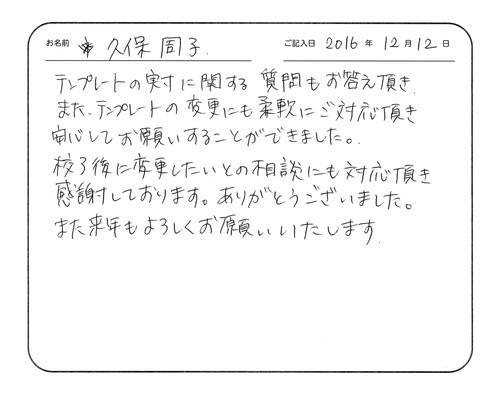 お名前 久保 周子. ご記入日 2016 年 12 月 12 日
テンプレートの実寸に関する 質問もお答え頂き
また、テンプレートの変更にも柔軟にご対応頂き
安心してお願いすることができました。
校了後に変更したいとの相談にも対応頂き
感謝しております。ありがとうございました。
また来年もよろしくお願いいたします.